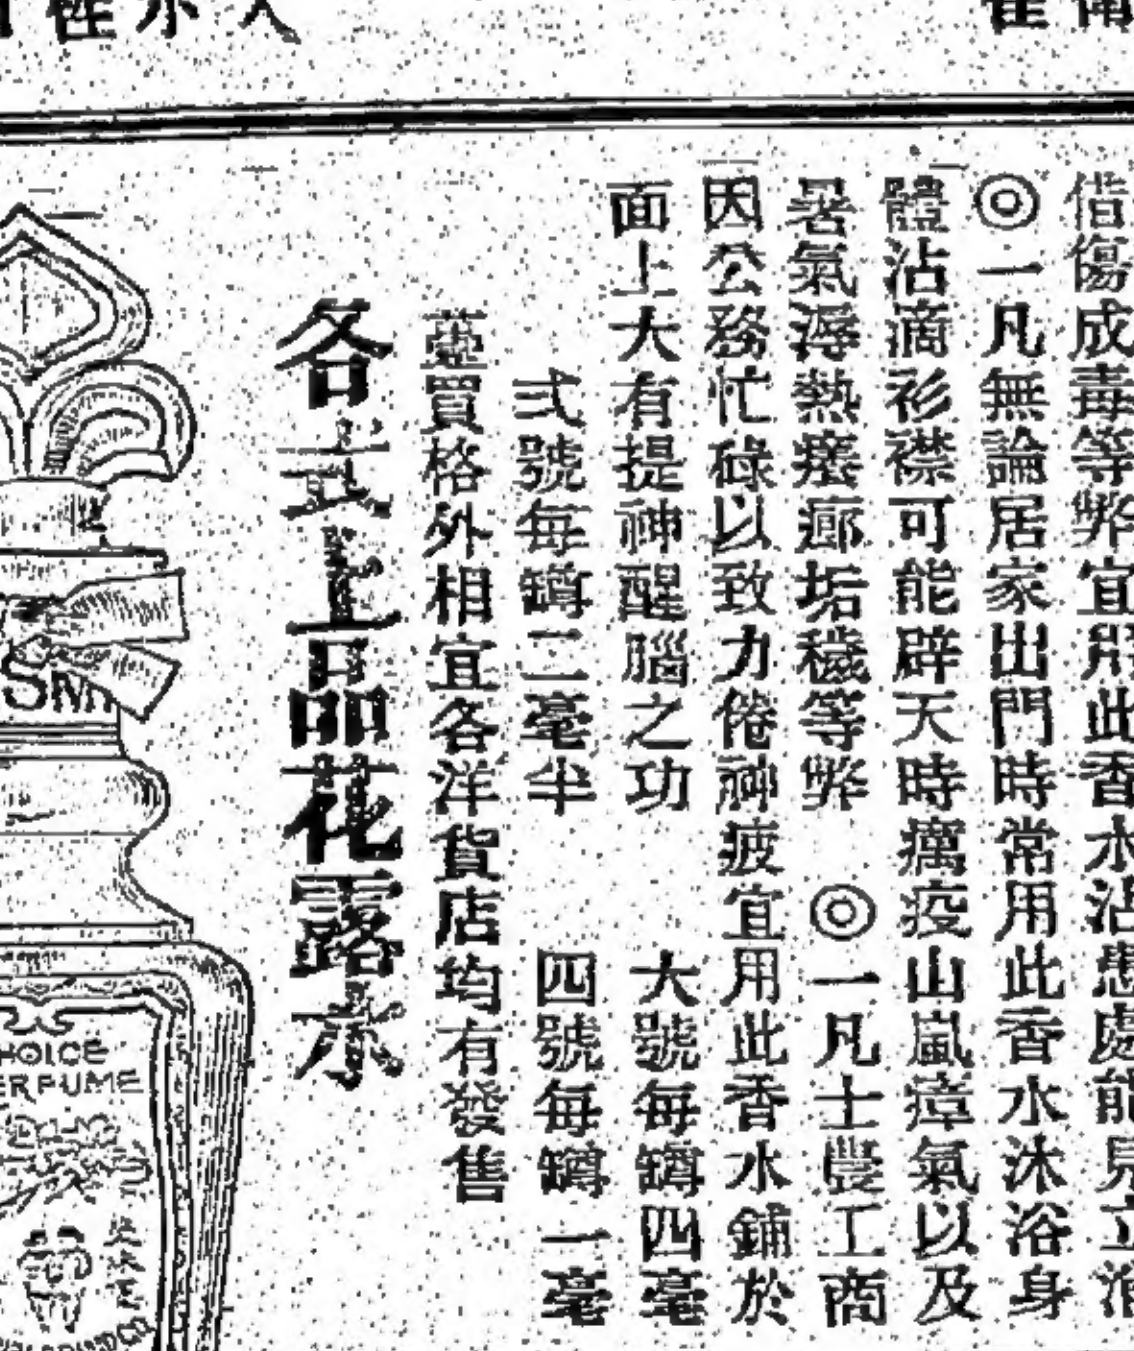 借傷成毒等弊宜用此香水沾患處能見立消
◎一凡無論居家出門時常用此香水沐浴身
體沾滴衫襟可能辟天時癘疫山嵐瘴氣以及
暑氣溽熱癢痱垢穢等弊 ◎一凡士農工商
因公務忙碌以致力倦神疲宜用此香水鋪於
面上大有提神醒腦之功 大號每罇四毫
弍號每罇二毫半 四號每罇一毫
躉買格外相宜各洋貨店均有發售
各式上品花露水
HOICE
ERFUME